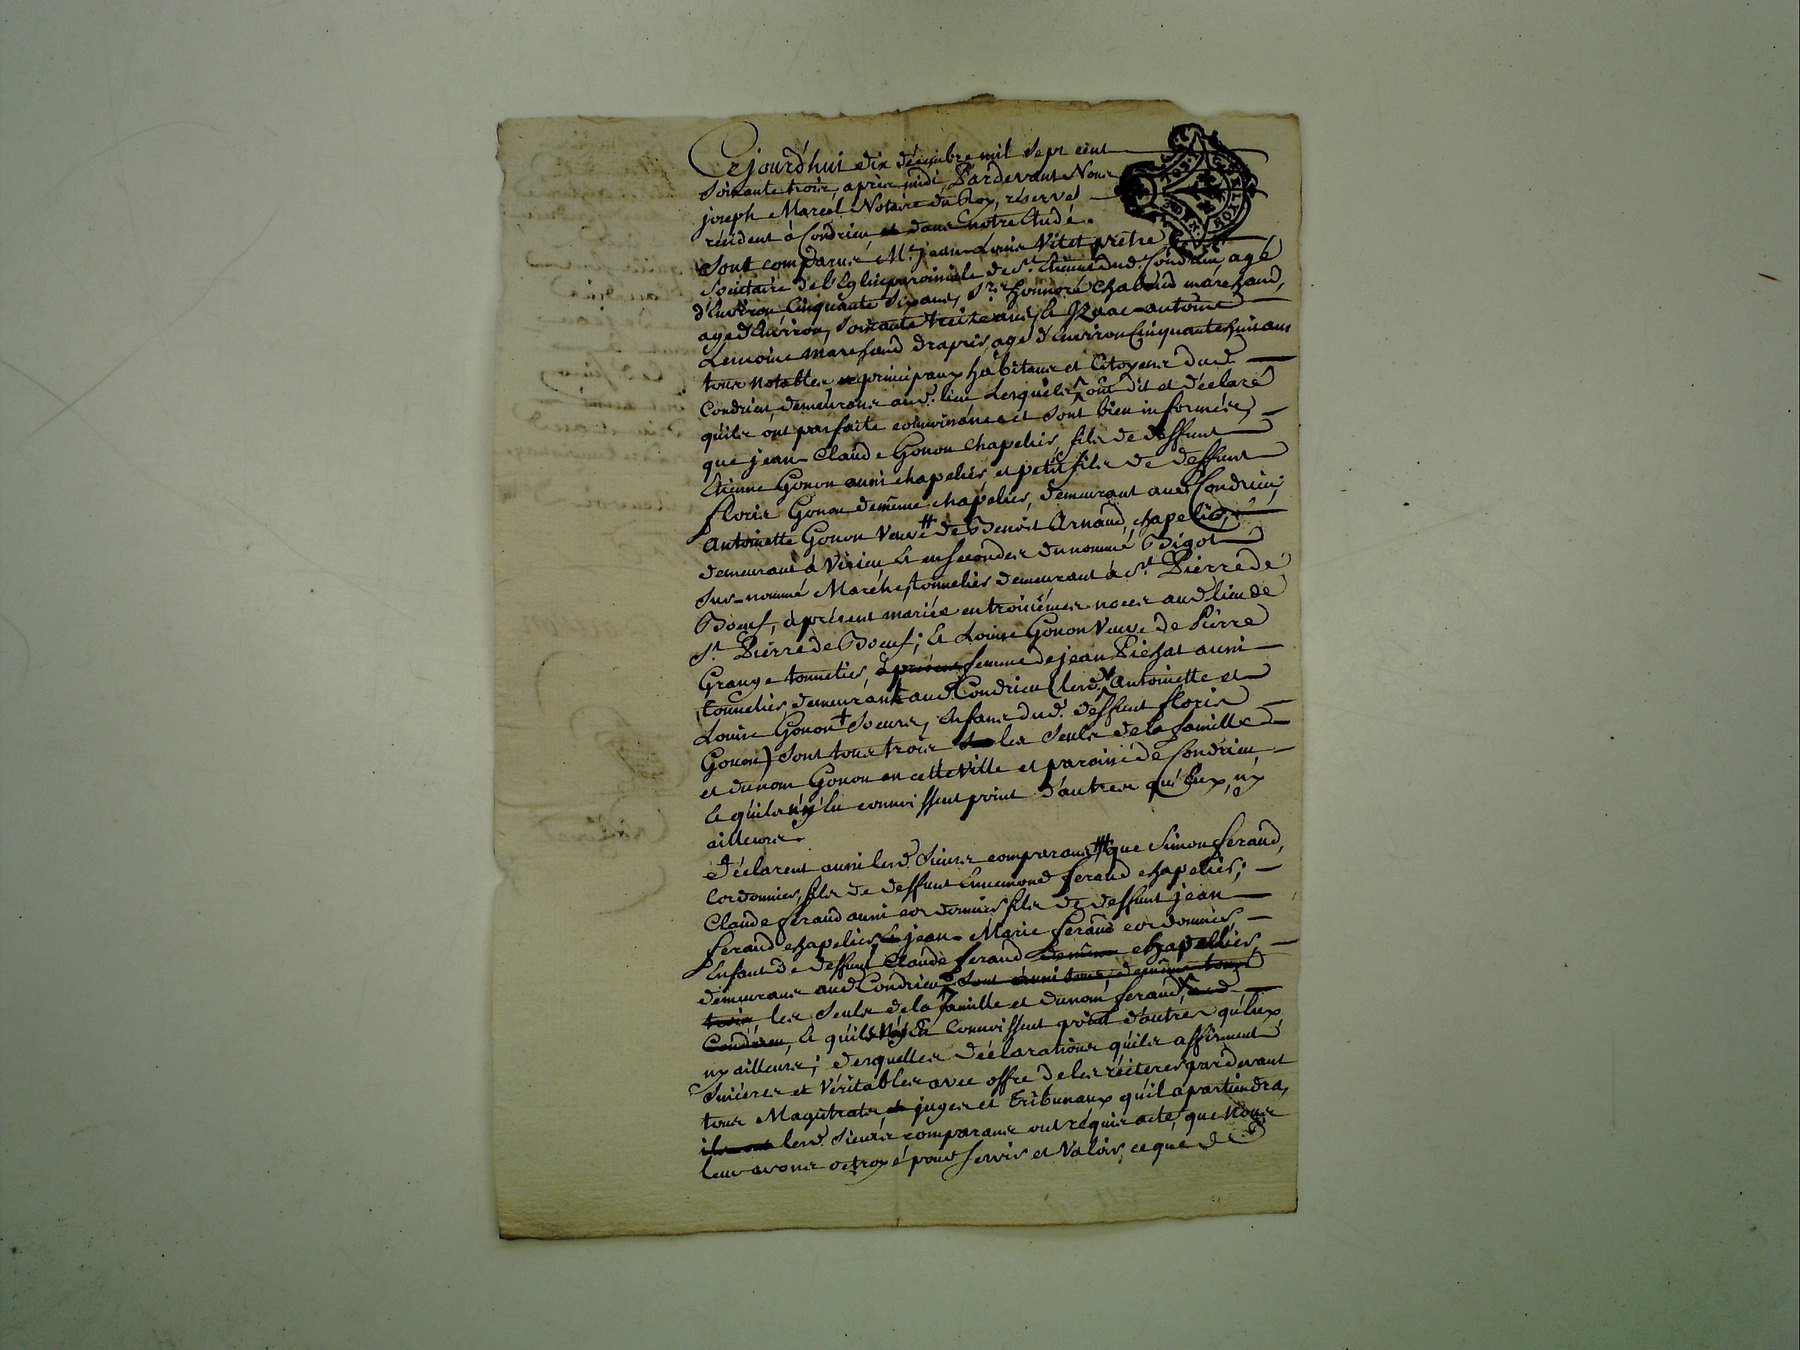 Cejourd'hui dix décembre mil sept cent
soixante trois, après midi, Pardevant Nous
joseph Marcel Notaire du Roy, réservé
résident à Condrieu et dans notre Etude.
Sont comparus Mr. jean Louis Vitet prêtre
Sociétaire de l'Eglise paroissiale de St. Etienne dud. Condrieu agé
d'Environ Cinquante Six ans, Sr. honnoré Chaboud marchand,
agé d'Environ soixante treize ans, & Izaac-antoine
Lemoine marchand drapier, agé d'Environ Cinquante huit ans
tous notables et principaux habitans et Citoyens dud.
Condrieu, demeurans aud. lieu Lesquels ont dit et déclaré
qu'ils ont parfaite connoissance et sont bien informés,
que jean Claude Gonon chapelier, fils de deffunt
Etienne Gonon aussi chapelier, et petit fils de deffunt
floris Gonon de même chapelier, demeurant aud. Condrieu;
Antoinette Gonon Veuve de Benoit Arnaud, chapelier,
demeurant à Virieu, & en secondes du nommé Bigot
sur-nommé Maréche, tonnelier demeurant à St. Pierre de
Boeuf, à présent mariée en troisièmes noces aud. lieu de
St. Pierre de Boeuf; & Louise Gonon Veuve de Pierre
Grange tonnelier, à présent femme de jean Pichat aussi
tonnelier, demeurant aud. Condrieu (lesd. Antoinette et
Louise Gonon Soeurs, Enfans dud. deffunt floris
Gonon) sont tous trois les seuls de la famille
et du nom Gonon en cette Ville et paroisse de Condrieu,
& qu'ils n'y en connoissent point d'autres qu'Eux, ny
ailleurs.
Déclarent aussi lesd. Sieurs comparans que Simon feraud,
Cordonnier, fils de deffunt Ennemond feraud chapelier;
Claude feraud aussi cordonnier fils de deffunt jean
feraud chapelier, & jean-Marie feraud cordonnier
Enfant de deffunt Claude feraud de même chapellier,
demeurans aud. Condrieu, sont aussi tous de même tous
trois les seuls de la famille et du nom feraud, aud.
Condrieu, & qu'ils n'y en connoissent point d'autres qu'Eux,
ny ailleurs; desquelles déclarations qu'ils affirment
Sincères et Véritables avec offre de les réiterer pardevant
tous Magistrats, et juges et Tribunaux qu'il apartiendra,
ils ont lesd. Sieurs comparans ont réquis acte, que Nous
leur avons octroyé pour servir et Valoir, ce que de